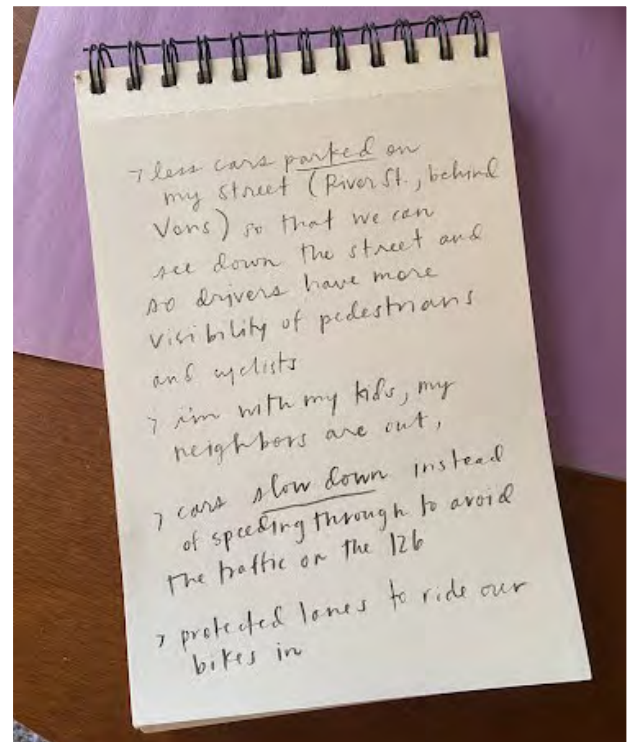 > less cars parked on
my street (River St., behind
Vons) so that we can
see down the street and
so drivers have more
visibility of pedestrians
and cyclists
> im with my kids, my
neighbors are out,
> cars slow down instead
of speeding through to avoid
the traffic on the 126
> protected lanes to ride our
bikes in